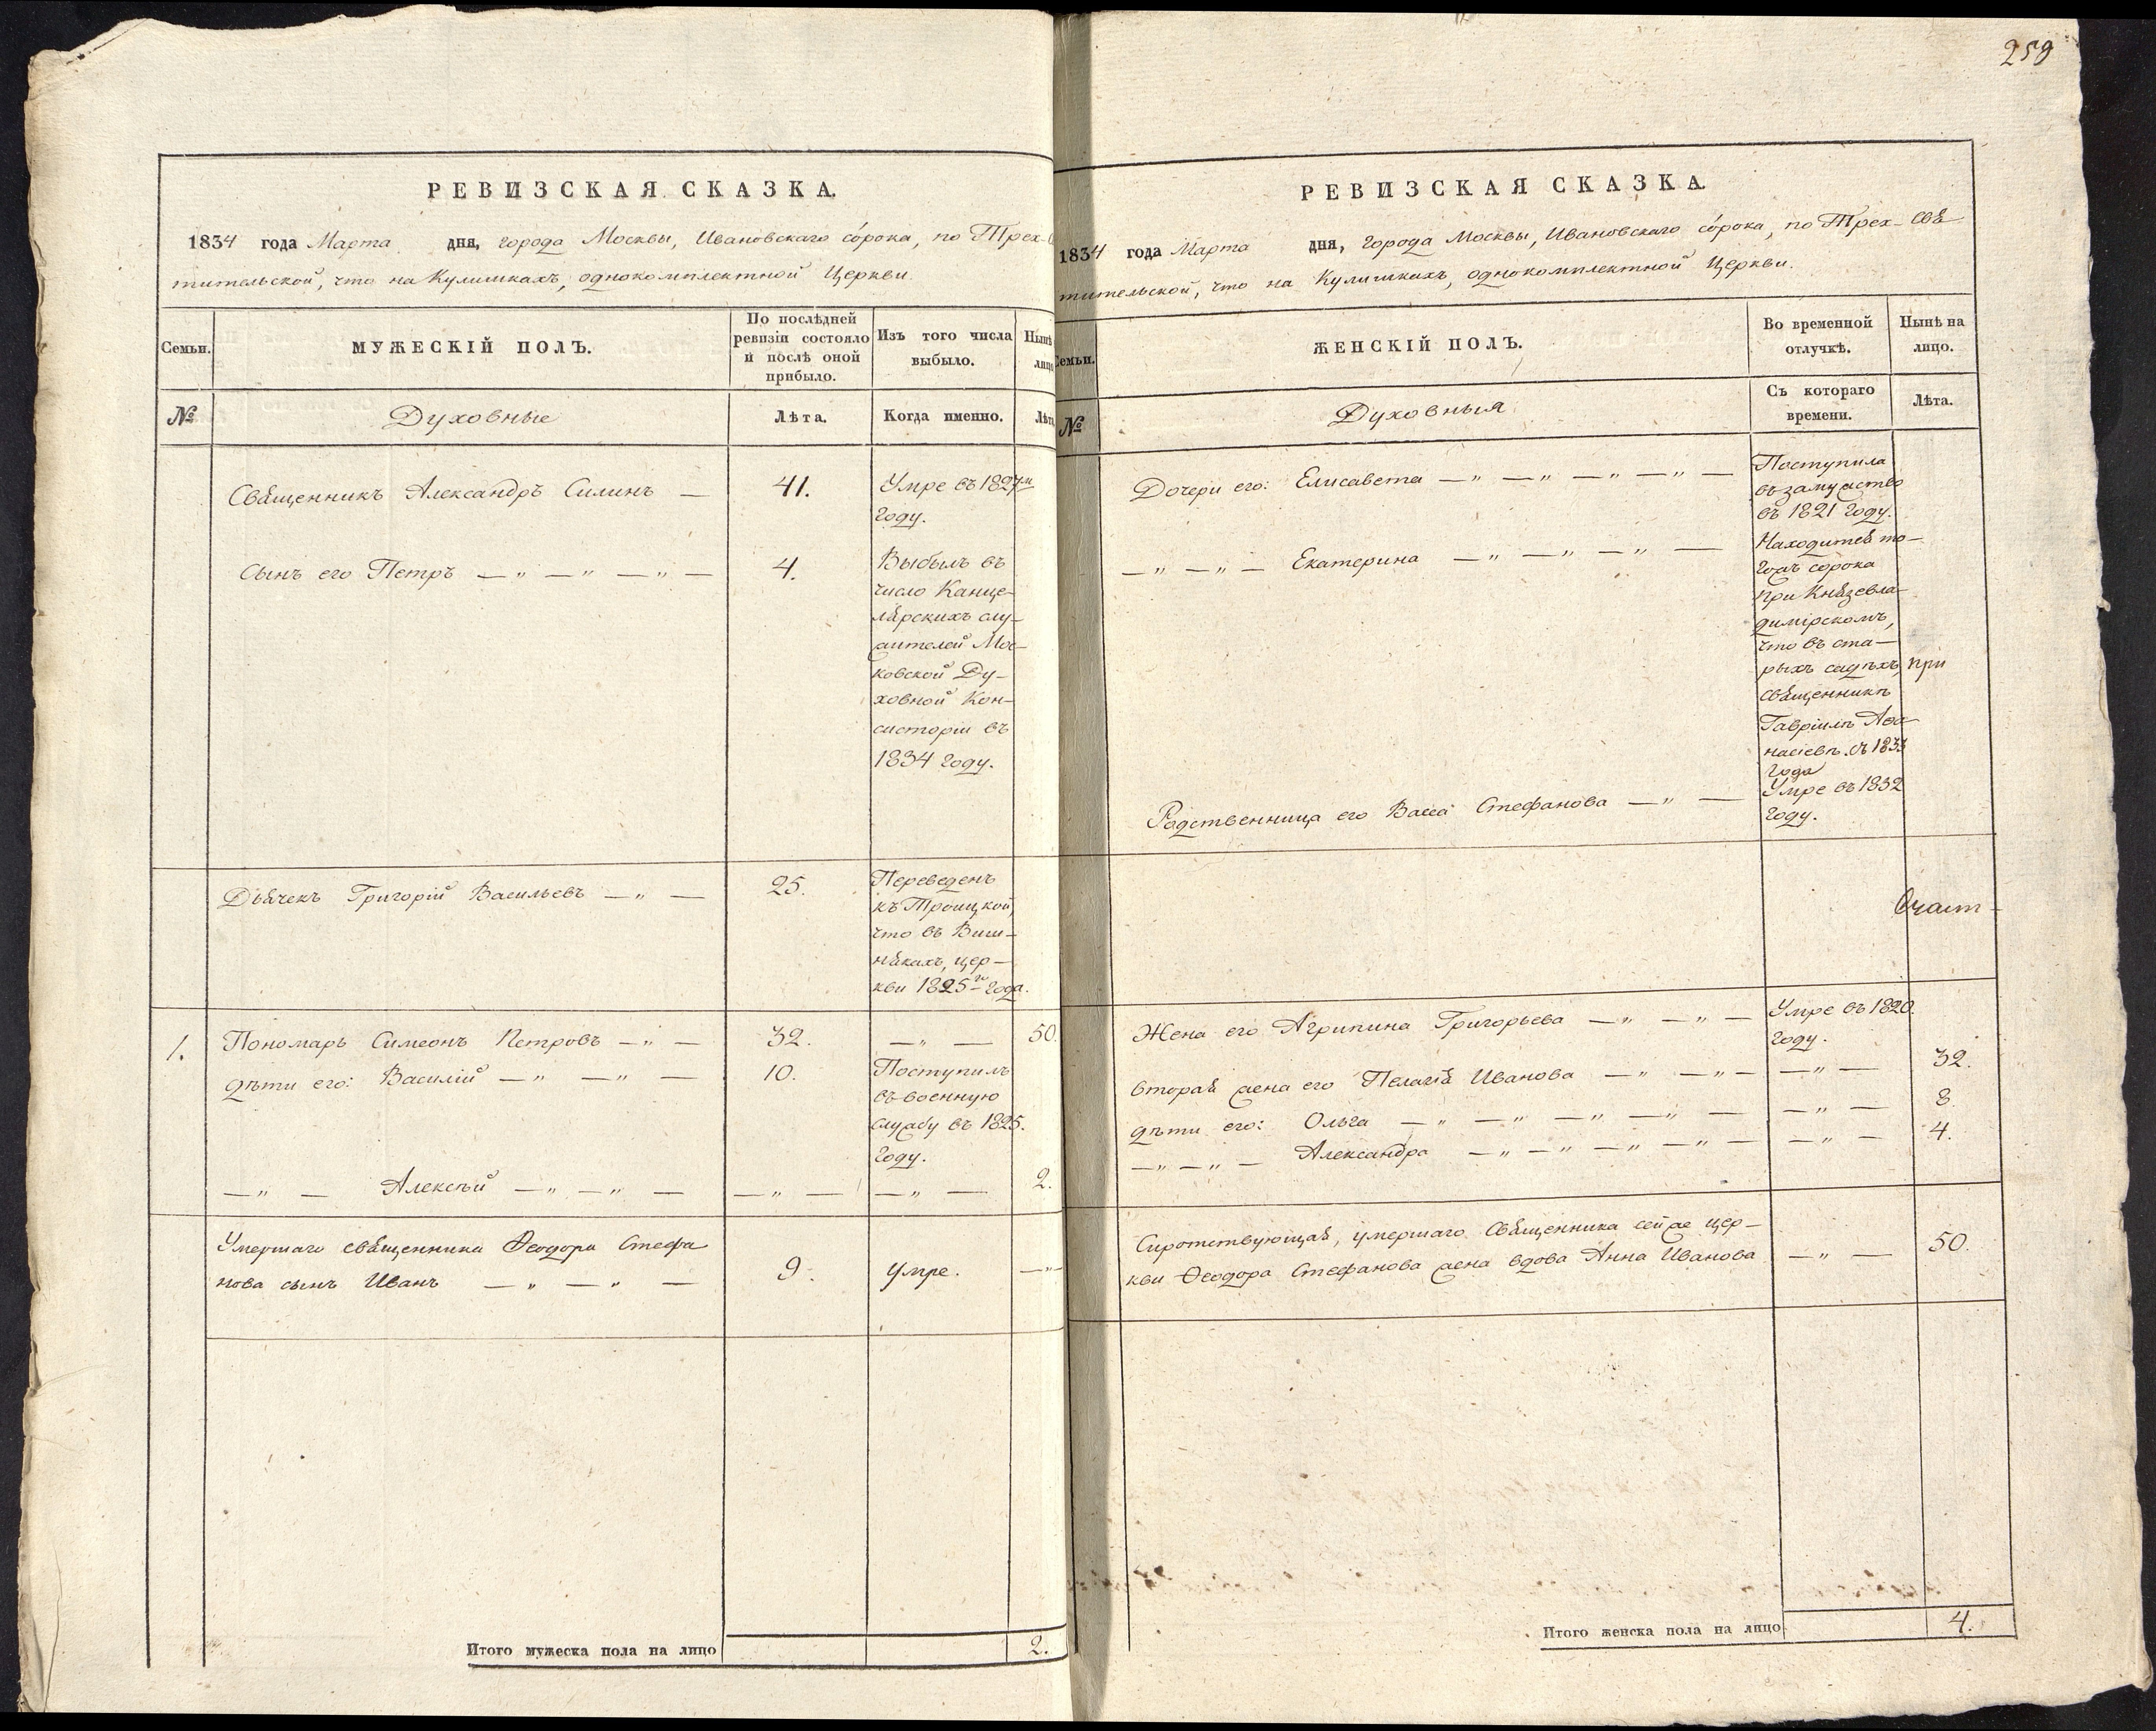 259
РЕВИЗСКАЯ СКАЗКА.
1834 года Марта дня, города Москвы, Ивановскаго со́рока, по Трех-
тительской, что на Кулишкахъ, однокомплектной Церкви.
Семьи.
МУЖЕСКІЙ ПОЛЪ.
По послѣдней
ревизіи состояло
и послѣ оной
прибыло.
Изъ того числа
выбыло.
Нынѣ
лицо
№
Духовные
Лѣта.
Когда именно.
Лѣта
Священникъ Александръ Силинъ —
41.
Умре въ 1827м
году.
Сынъ его Петръ — „ — „ — „ —
4.
Выбылъ въ
число Канце-
лярскихъ слу-
жителей Мос-
ковской Ду-
ховной Кон-
систоріи въ
1834 году.
Дьячекъ Григорій Васильевъ — „ —
25.
Переведенъ
къ Троицкой,
что въ Виш-
някахъ, цер-
кви 1825го года.
1.
Пономарь Симеонъ Петровъ — „ —
32.
— „ —
50.
дѣти его: Василій — „ — „ —
10.
Поступилъ
въ военную
службу въ 1825.
году.
— „ — Алексѣй — „ — „ —
— „ —
— „ —
2.
Умершаго священника Ѳеодора Стефа
нова сынъ Иванъ — „ — „ —
9.
умре.
— „ —
Итого мужеска пола на лицо
2.
РЕВИЗСКАЯ СКАЗКА.
1834 года Марта дня, города Москвы, Ивановскаго со́рока, по Трех-Свя
тительской, что на Кулишкахъ, однокомплектной Церкви.
Семьи.
ЖЕНСКІЙ ПОЛЪ.
Во временной
отлучкѣ.
Нынѣ на
лицо.
№
Духовныя
Съ котораго
времени.
Лѣта.
Дочери его: Елисавета — „ — „ — „ — „ —
Поступила
въ замужство
въ 1821 году.
— „ — „ — Екатерина — „ — „ — „ —
Находится то-
гожъ сорока
при Князевла-
димірскомъ,
что въ ста-
рыхъ садѣхъ, при
священникѣ
Гавріилѣ Аѳа-
насіевѣ. съ 1833
года
Родственница его Васса Стефанова — „ —
Умре въ 1832
году.
Счаст-
Жена его Агрипина Григорьева — „ — „ —
Умре въ 1820.
году.
вторая жена его Пелагія Иванова — „ — „ —
— „ —
32.
дѣти его: Ольга — „ — „ — „ — „ —
— „ —
8.
— „ — „ — Александра — „ — „ — „ — „ —
— „ —
4.
Сиротствующая, умершаго Священника сей же цер-
кви Ѳеодора Стефанова жена вдова Анна Иванова
— „ —
50.
Итого женска пола на лицо
4.